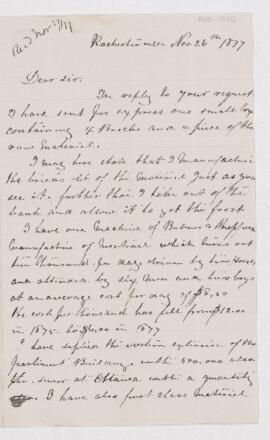 Recd Nov 27/77
Rochesterville Nov 26th 1877
Dear Sir.
In reply to your request
I have sent per express one small box
containing 4 Bricks and a piece of the
raw material.
I may here state that I manufacture
the bricks out of the Material just as you
see it. further than I take out of the
bank and allow it to get the frost
I have one Machine of
Manufacture of Montreal which turns out
ten thousand per day driven by two Horses
and attended by six men and two boys
at an average cost per day of $8.50
The cost per thousand has fell from $12.00
in 1875. to $6.00 in 1877
I have supplied the western extension of the
Parliment Building with 500.000 also
the sewer at Ottawa with a quantity
I have also first class Material